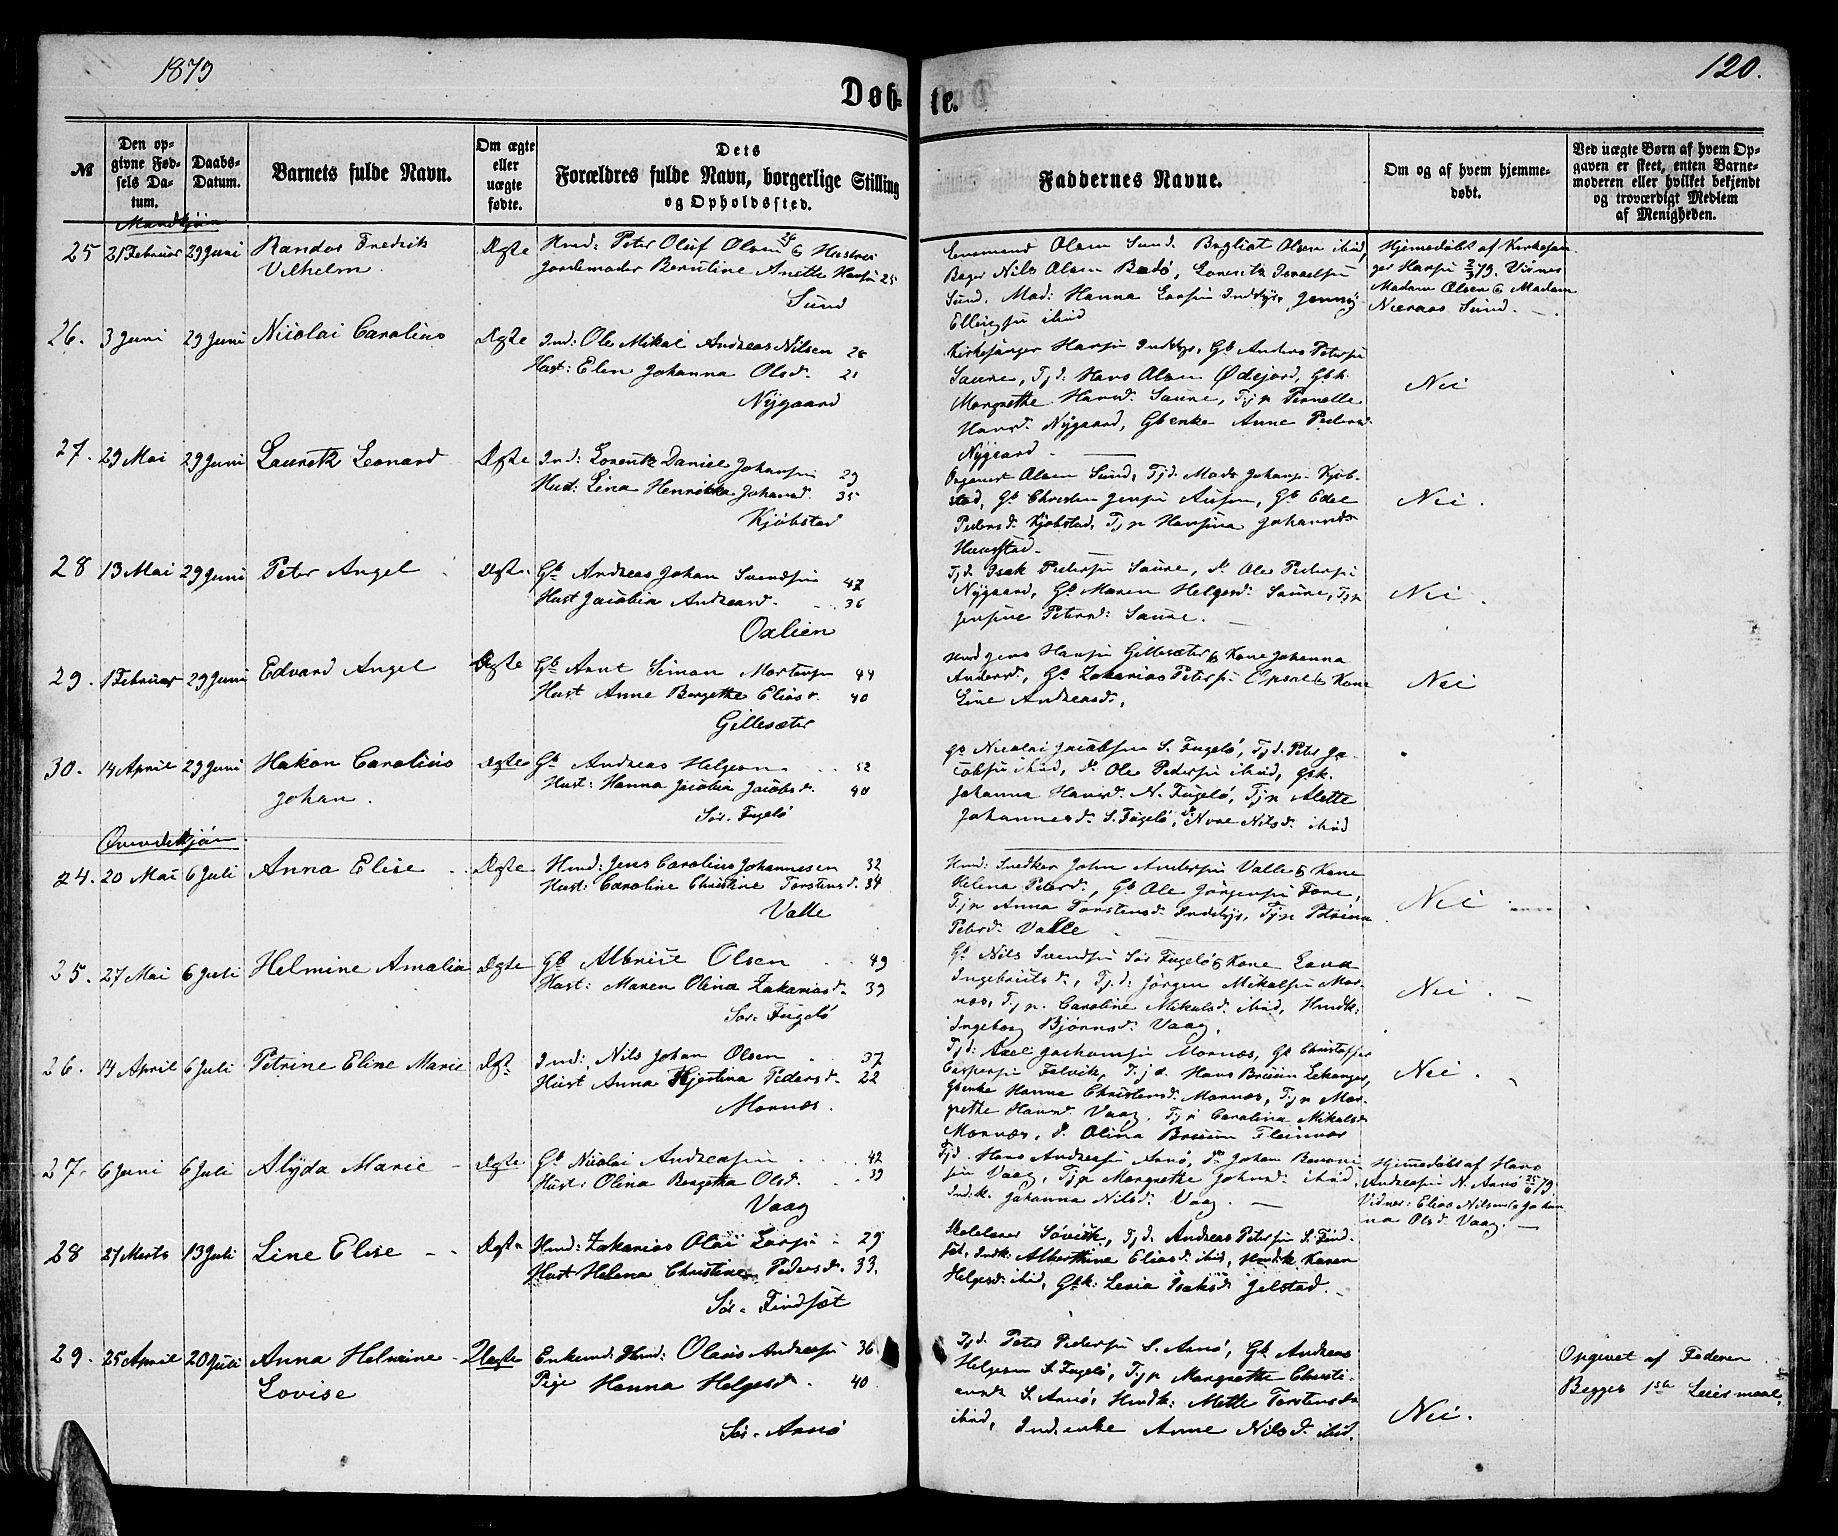 1879
120.
Døb-
te.
№
Den op-
givne Fød-
sels Da-
tum.
Daabs-
Datum.
Barnets fulde Navn.
Om ægte
eller
uægte
fødte.
Dets
Forældres fulde Navn, borgerlige Stilling
og Opholdssted.
Faddernes Navne.
Om og af hvem hjemme-
døbt.
Ved uægte Børn af hvem Op-
gaven er skeet, enten Barne-
moderen eller hvilket bekjendt
og troværdigt Medlem
af Menigheden.
Mandkjøn
25 21 Februar 29 Juni Randor Fredrik
Vilhelm
Ægte Hmd: Peter Oluf Olsen 24 & Hustru
Jordemoder Berntine Anette Hansen 25
Sund
Evensend Olsen Sund. Olsen ibid,
Nils Olsen Bodø, Lorentz Israelsen
Sund. Mad: Hanna Larsen Indyr, Jenny
Ellingsen ibid
Hjemedøbt af Kirkesan
ger Hansen 2/3 79. Vidner
Madam Olsen & Madam
Sund.
26. 3 Juni 29 Juni Nicolai Carolius
Ægte Ind: Ole Mikal Andreas Nilsen 28
Hust: Elen Johanna Olsd. 21
Nygaard
Kirkesanger Hansen Indbyr, Gb Anders Petersen
Saure, Tjd. Hans Olsen Ødejord, Gbk.
Margrethe Hansd. Saure, Tjp Pernelle
Hansd. Nygaard, Gbenke Anne Pedersd.
Nygaard
Nei
27. 29 Mai 29 Juni Lauretz Leonard
Ægte Ind: Lorentz Daniel Johansen 29
Hust: Lina Henrikka Johansd. 35
Kjøbstad
Olsen Sund, Tjd: Mads Johansen Kjøb-
stad, Gb Christen Jensen, Gb Edel
Pedersd. Kjøbstad, Tjp Hansina Johannsd.
Nei.
28 13 Mai 29 Juni Peter Angel
Ægte. Gb. Andreas Johan Svendsen 47
Hust Jacobia Andreasd. 36
Oalien
Tjd. Isak Pedersen Saure, do Ole Pedersen
Nygaard, Gb Maren Helgesd. Saure, Tjp
Jensine Petersd: Saure.
Nei.
29. 1 Februar 29 Juni Edvard Angel
Ægte Gb Arnt Simon Mortensen 44
Hust Anne Bergette Eliasd. 40
Gillesæter
Hmd Jens Hansen Gillesæter & Kone Johanna
Andersd., Gb. Zakarias Petersen Opsal & Kone
Line Andreasd.
Nei
30. 14 April 29 Juni Hakon Carolius
Johan.
Ægte Gb. Andreas Helgesen 52
Hust: Hanna Jacobia Jacobsd. 40
Sør-Fugelø
Gb Nicolai Jacobsen S. Fugelø, Tjd. Peter Ja-
cobsen ibid, do Ole Pedersen ibid, Gbk.
Johanna Hansd. N. Fugelø, Tjp Alette
Johannesd. S. Fugelø, Nilsd. ibid
Qvindekjøn
24. 20 Mai 6 Juli Anna Elise
Ægte Hmd: Jens Carolius Johannesen 32
Hust: Caroline Christine Torstensd. 34
Valle
Hmd: Snedker John Andersen Valle & Kone
Helena Petersd., Gb Ole Jørgensen Fore,
Tjp Anna Torstensd. Indbyr, Tjp Petrina
Petersd. Valle
Nei
25. 27 Mai 6 Juli Helmine Amalia
Ægte Gb Albrict Olsen 49
Hust: Maren Olina Zakariasd. 39
Sør-Fugelø
Gb Nils Svendsen Sør Fugelø & Kone Lava
Ingebrictsd., Tjd: Jørgen Mikalsen Mor-
næs, Tjp. Caroline Mikalsd. ibid, Hmdk:
Ingeborg Bjørnsd. Vaag.
Nei.
26. 14 April 6 Juli Petrine Eline Marie
Ægt. Ind: Nils Johan Olsen 37
Hust Anna Kjerstina Pedersd. 22
Mornæs.
Tjd: Axel Jochomsen Mornæs, Gb Christoffer
Caspersen Falvik, Tjd. Hans Lekanger,
Gbenke Hanna Christensd. Mornæs, Tjp Mar-
grethe Hansd. Vaag. Tjp Carolina Mikalsd.
Mornæs, do Olina Fleinvær
Nei.
27. 6 Juni 6 Juli Alyda Marie
Ægte Gb Nicolai Andreasen 42
Hust: Olina Bergetta Olsd. 39
Vaag
Tjd. Hans Andreasen Arnø, do Johan Benoni-
sen Vaag, Tjp Margrethe Johnsd. ibid,
Indk. Johanna Nilsd. Vaag.
Hjemedøbt af Hans
Andreasen N. Arnø 25/6 79
Vidner: Elias Nilsen & Johan
na Olsd. Vaag.
28 27 Marts 13 Juli Line Elise
Ægte Hmd: Zakarias Olai Larsen 29
Hust Helena Christine Pedersd. 33.
Sør-Findsæt
Skolelærer Søvik, Tjd. Andreas Petersen S. Find-
sæt, Indk: Alberthine Eliasd. ibid, Hmdk. Karen
Helgesd. ibid, Gbk: Lesia Isaksd. Jelstad.
29. 25 April 20 Juli Anna Helmine
Lovise
Uægte Enkemd: Hmd: Olaus Andreasen 36
Pige Hanna Helgesd. 40
Sør-Arnø
Tjd. Peter Pedersen S. Arnø, Gb Andreas
Helgesen S. Fugelø, Tjp Margrethe Christi-
ansd. S. Arnø, Hmdk: Mette Torstensd.
ibid, Ind.enke Anne Nilsd. ibid.
Nei.
Opgivet af Faderen.
Begges 1ste Leiermaal.